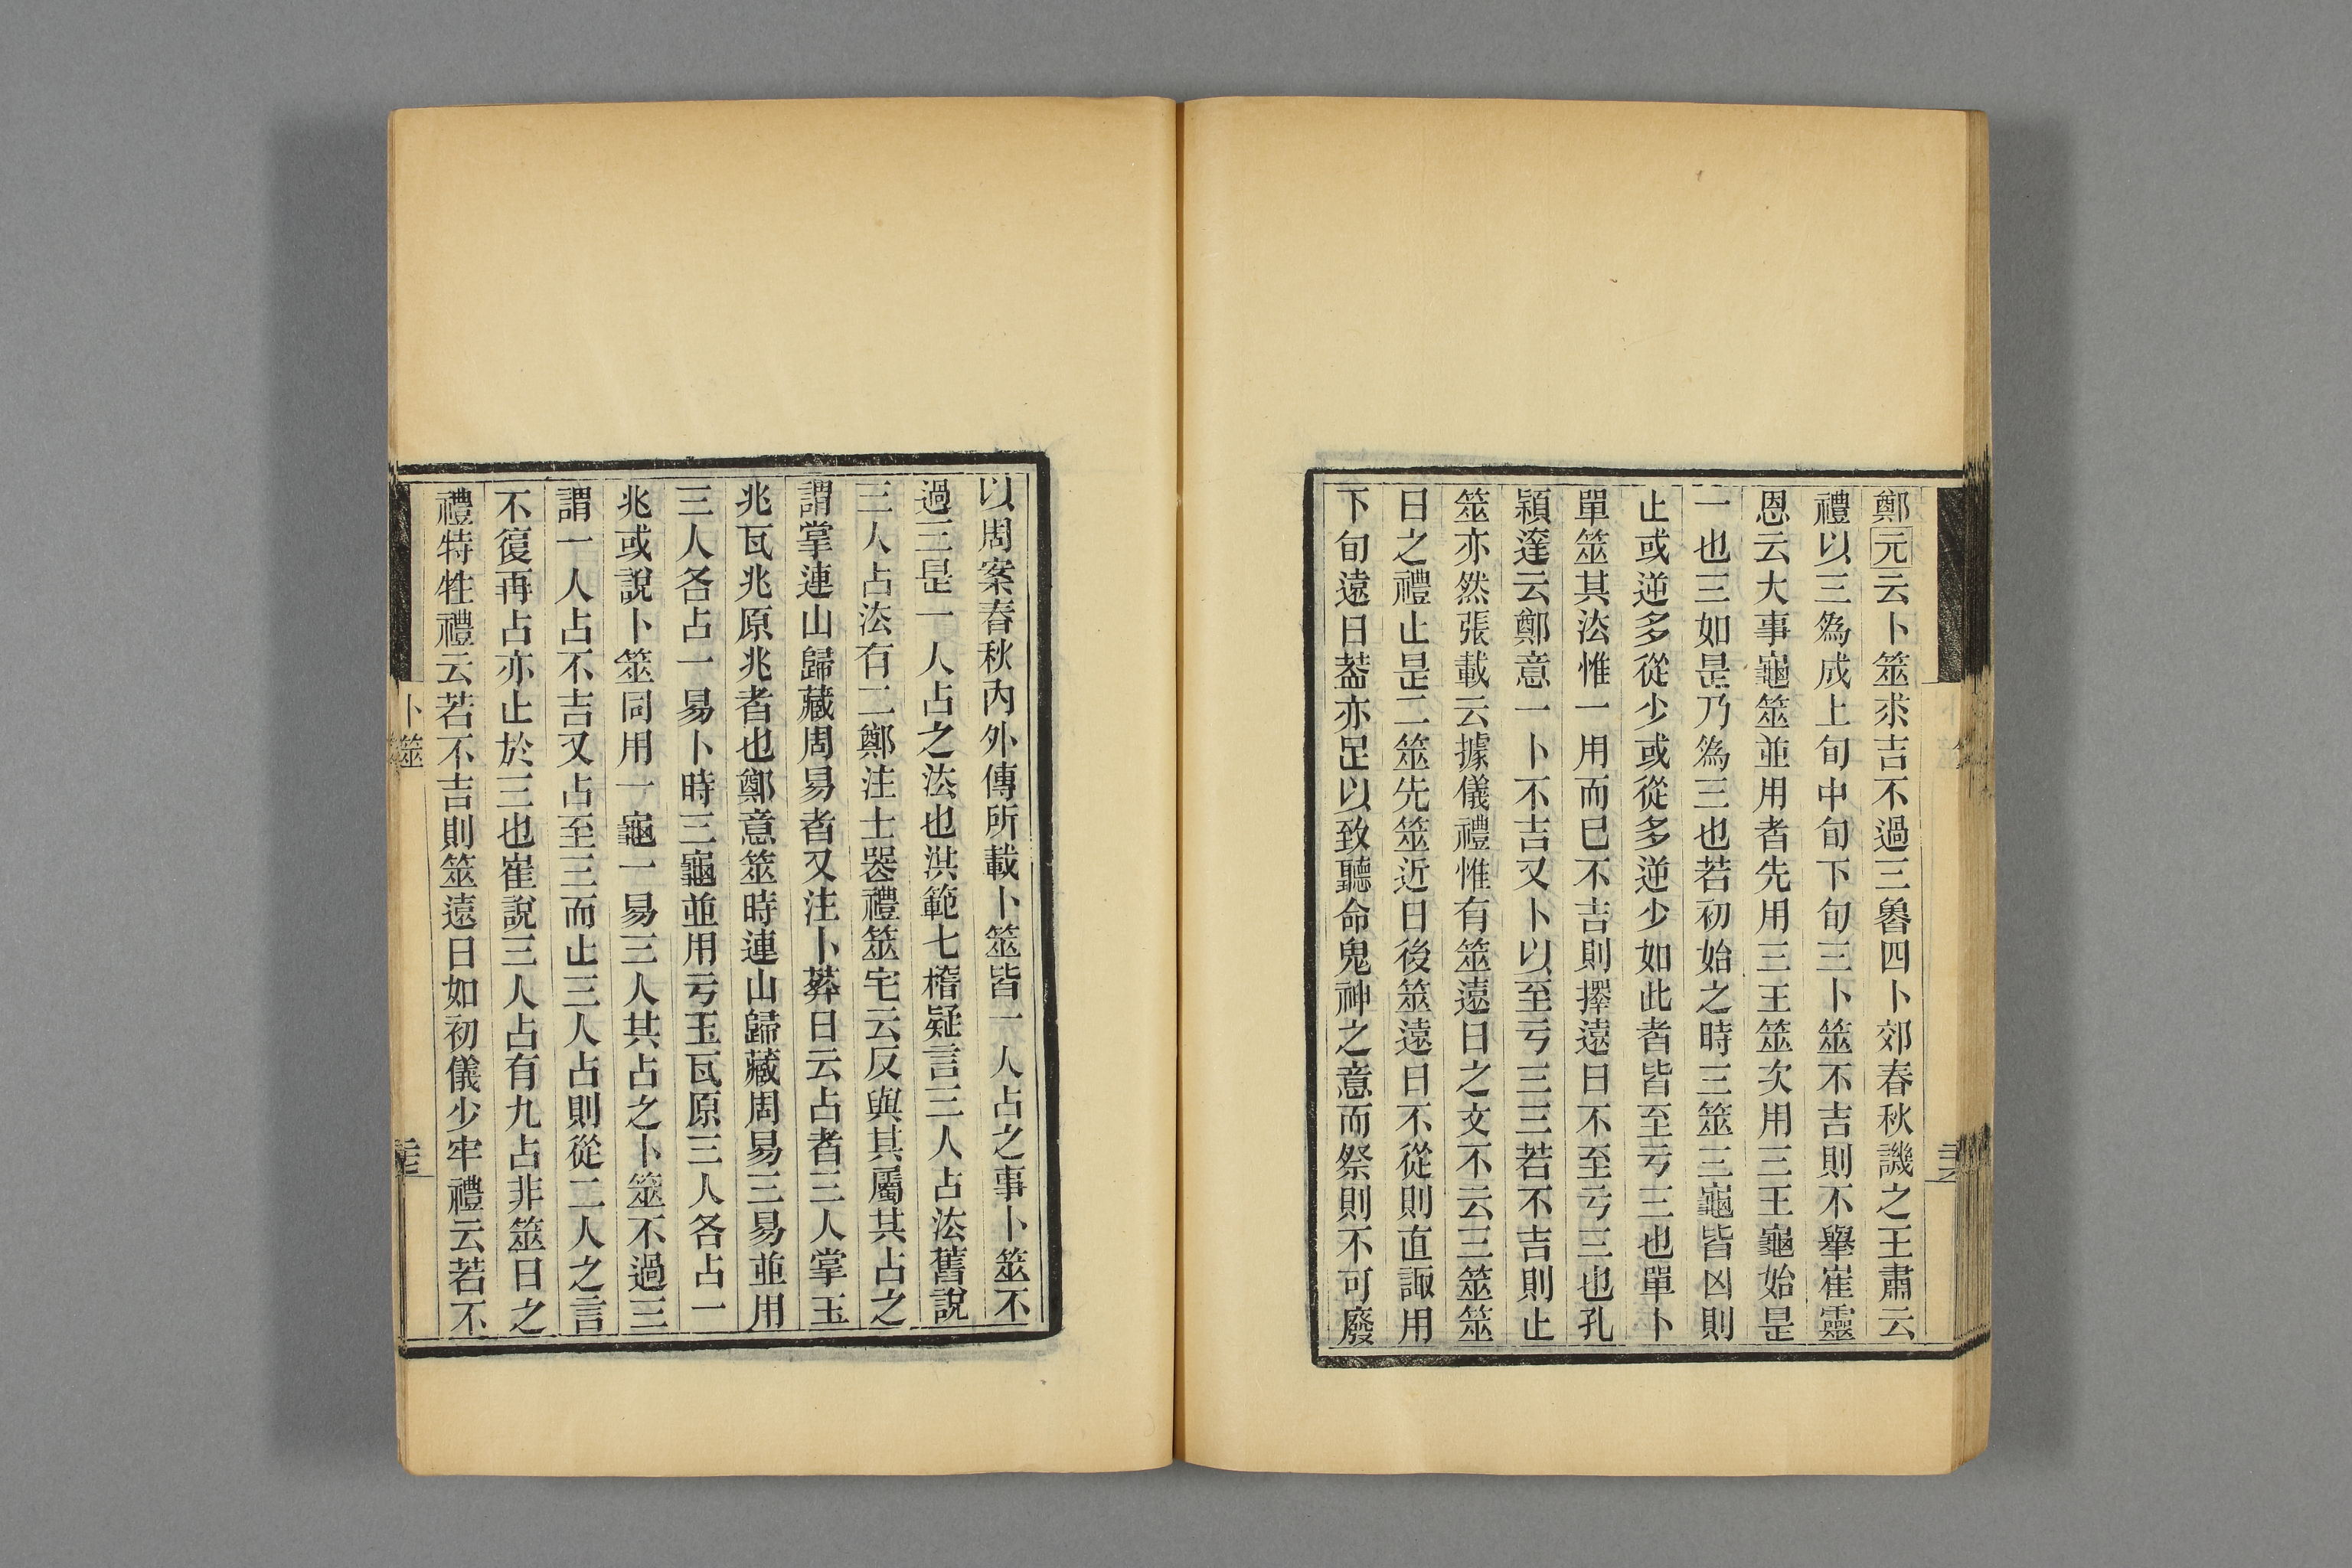 鄭元云卜筮求吉不過三魯四卜郊春秋譏之王肅云
禮以三為成上旬中旬下旬三卜筮不吉則不舉崔靈
恩云大事龜筮並用者先用三王筮次用三王龜始是
一也三如是乃為三也若初始之時三筮三龜皆凶則
止或逆多從少或從多逆少如此者皆至亏三也單卜
單筮其法惟一用而已不吉則擇遠日不至亏三也孔
穎達云鄭意一卜不吉又卜以至亏三三若不吉則止
筮亦然張載云據儀禮惟有筮遠日之文不云三筮筮
日之禮止是二筮先筮近日後筮遠日不從則直諏用
下旬遠日葢亦足以致聽命鬼神之意而祭則不可廢
以周案春秋內外傳所載卜筮皆一人占之事卜筮不
過三是一人占之法也洪範七稽疑言三人占法舊說
三人占法有二鄭注士喪禮筮宅云反與其屬共占之
謂掌連山歸藏周易者又注卜葬日云占者三人掌玉
兆瓦兆原兆者也鄭意筮時連山歸藏周易三易並用
三人各占一易卜時三龜並用亏玉瓦原三人各占一
兆或說卜筮同用一龜一易三人共占之卜筮不過三
謂一人占不吉又占至三而止三人占則從二人之言
不復再占亦止於三也崔說三人占有九占非筮日之
禮特牲禮云若不吉則筮遠日如初儀少牢禮云若不
卜筮